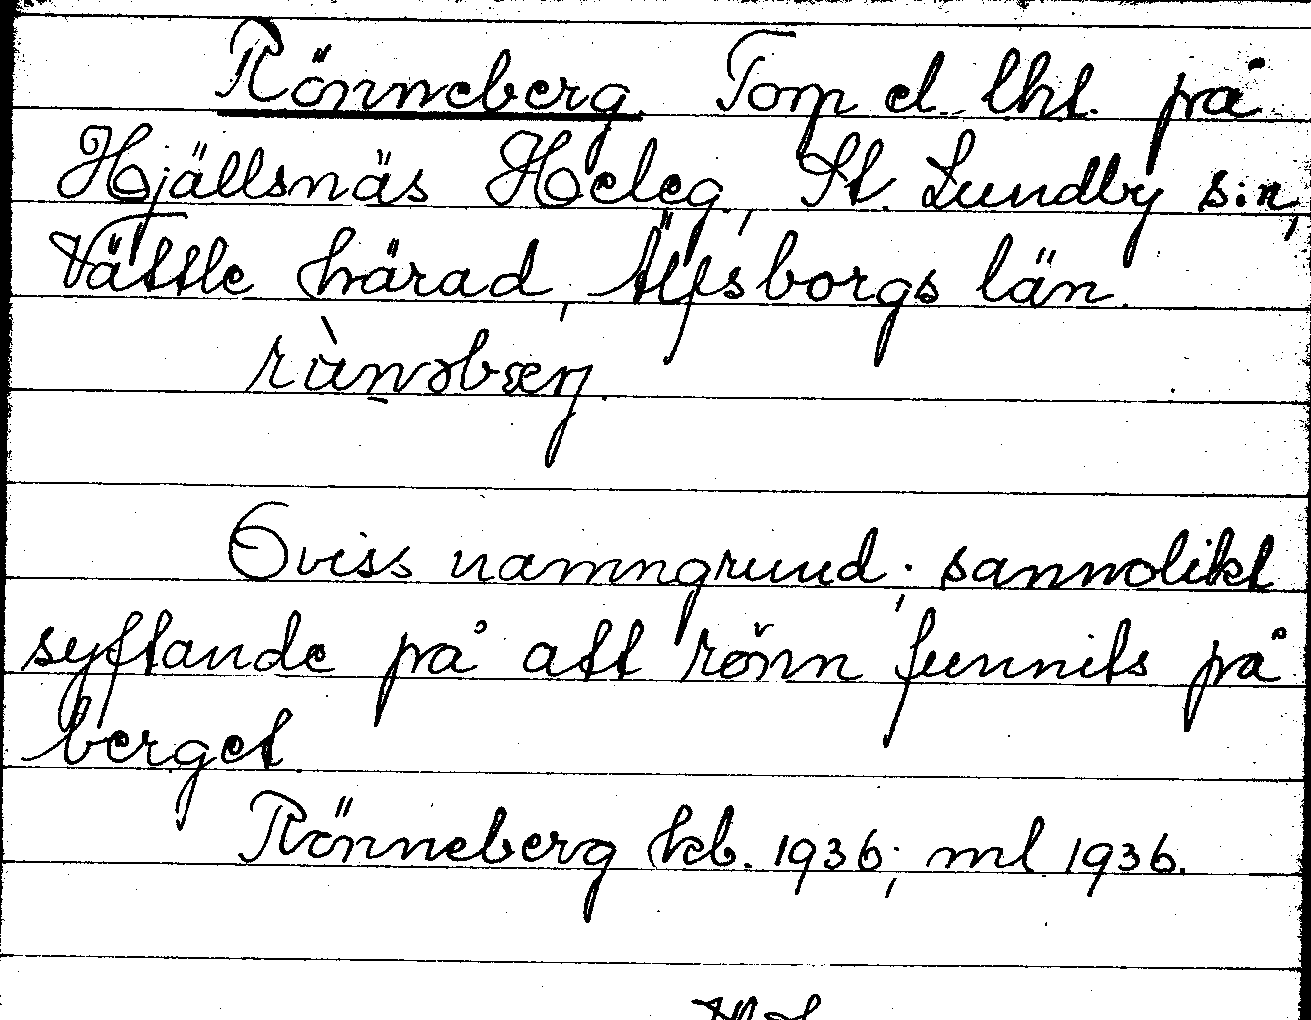 Rönneberg. Torp el. lht. på
Hjällsnäs Heleg, St. Lundby s:n,
Vättle härad, Älfsborgs län.
Oviss namngrund; sannolikt
syftande på att rönn funnits på
berget
Rönneberg kb. 1936; ml 1936.